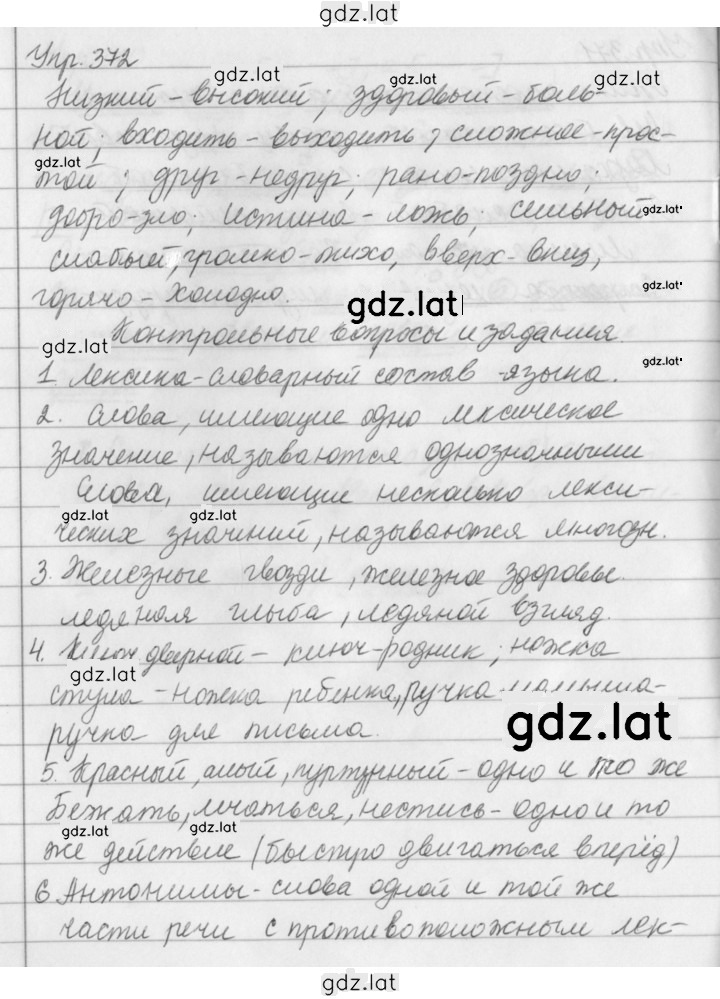 gdz.lat
Упр. 372
gdz.lat
gdz.lat
Низкий - высокий; здоровый - боль-
ной; входить - выходить; сложное - прос-
gdz.lat
той; друг - недруг; рано - поздно;
добро - зло; истина - ложь; сильный
gdz.lat
слабый, громко - тихо, вверх - вниз,
горячо - холодно.
gdz.lat
gdz.lat
Контрольные вопросы и задания.
gdz.lat
1. Лексика - словарный состав языка.
2. Слова, имеющие одно лексическое
значение, называются однозначными
Слова, имеющие несколько лекси-
gdz.lat
gdz.lat
ческих значений, называются многозн.
3. Железные гвозди, железное здоровье.
ледяная глыба, ледяной взгляд.
4. Ключ дверной - ключ - родник; ножка
gdz.lat
стула - ножка ребенка, ручка малыша -
gdz.lat
ручка для письма.
5. Красный, алый, пурпурный - одно и то же
Бежать, мчаться, нестись - одно и то
gdz.lat
gdz.lat
же действие (быстро двигаться вперёд)
6. Антонимы - слова одной и той же
части речи с противоположным лек-
gdz.lat